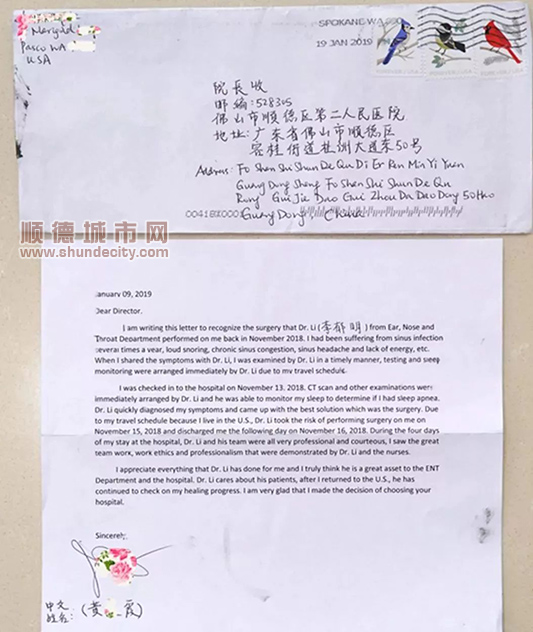 Pasco WA
USA
SPOKANE WA 990
19 JAN 2019 PM
院長收
邮编:528305
佛山市顺德区第二人民医院
地址:广东省佛山市順德区
容桂街道桂洲大道东50号
Address: Fo Shan Shi Shun De Qu Di Er Ren Min Yi Yuan
Guang Dong Sheng Fo Shan Shi Shun De Qu
Rong Gui Jie Dao Gui Zhou Da Dao Dong 50 Hao
Guang Dong, China
00418X0001
顺德城市网
www.shundecity.com
January 09, 2019
Dear Director.
I am writing this letter to recognize the surgery that Dr. Li (李郁明) from Ear, Nose and
Throat Department performed on me back in November 2018. I had been suffering from sinus infection
several times a year, loud snoring, chronic sinus congestion, sinus headache and lack of energy, etc.
When I shared the symptoms with Dr. Li, I was examined by Dr. Li in a timely manner, testing and sleep
monitoring were arranged immediately by Dr. Li due to my travel schedule.
I was checked in to the hospital on November 13. 2018. CT scan and other examinations were
immediately arranged by Dr. Li and he was able to monitor my sleep to determine if I had sleep apnea.
Dr. Li quickly diagnosed my symptoms and came up with the best solution which was the surgery. Due
to my travel schedule because I live in the U.S., Dr. Li took the risk of performing surgery on me on
November 15, 2018 and discharged me the following day on November 16, 2018. During the four days
of my stay at the hospital, Dr. Li and his team were all very professional and courteous, I saw the great
team work, work ethics and professionalism that were demonstrated by Dr. Li and the nurses.
I appreciate everything that Dr. Li has done for me and I truly think he is a great asset to the ENT
Department and the hospital. Dr. Li cares about his patients, after I returned to the U.S., he has
continued to check on my healing progress. I am very glad that I made the decision of choosing your
hospital.
Sincerely,
中文
姓名: (黄 霞)